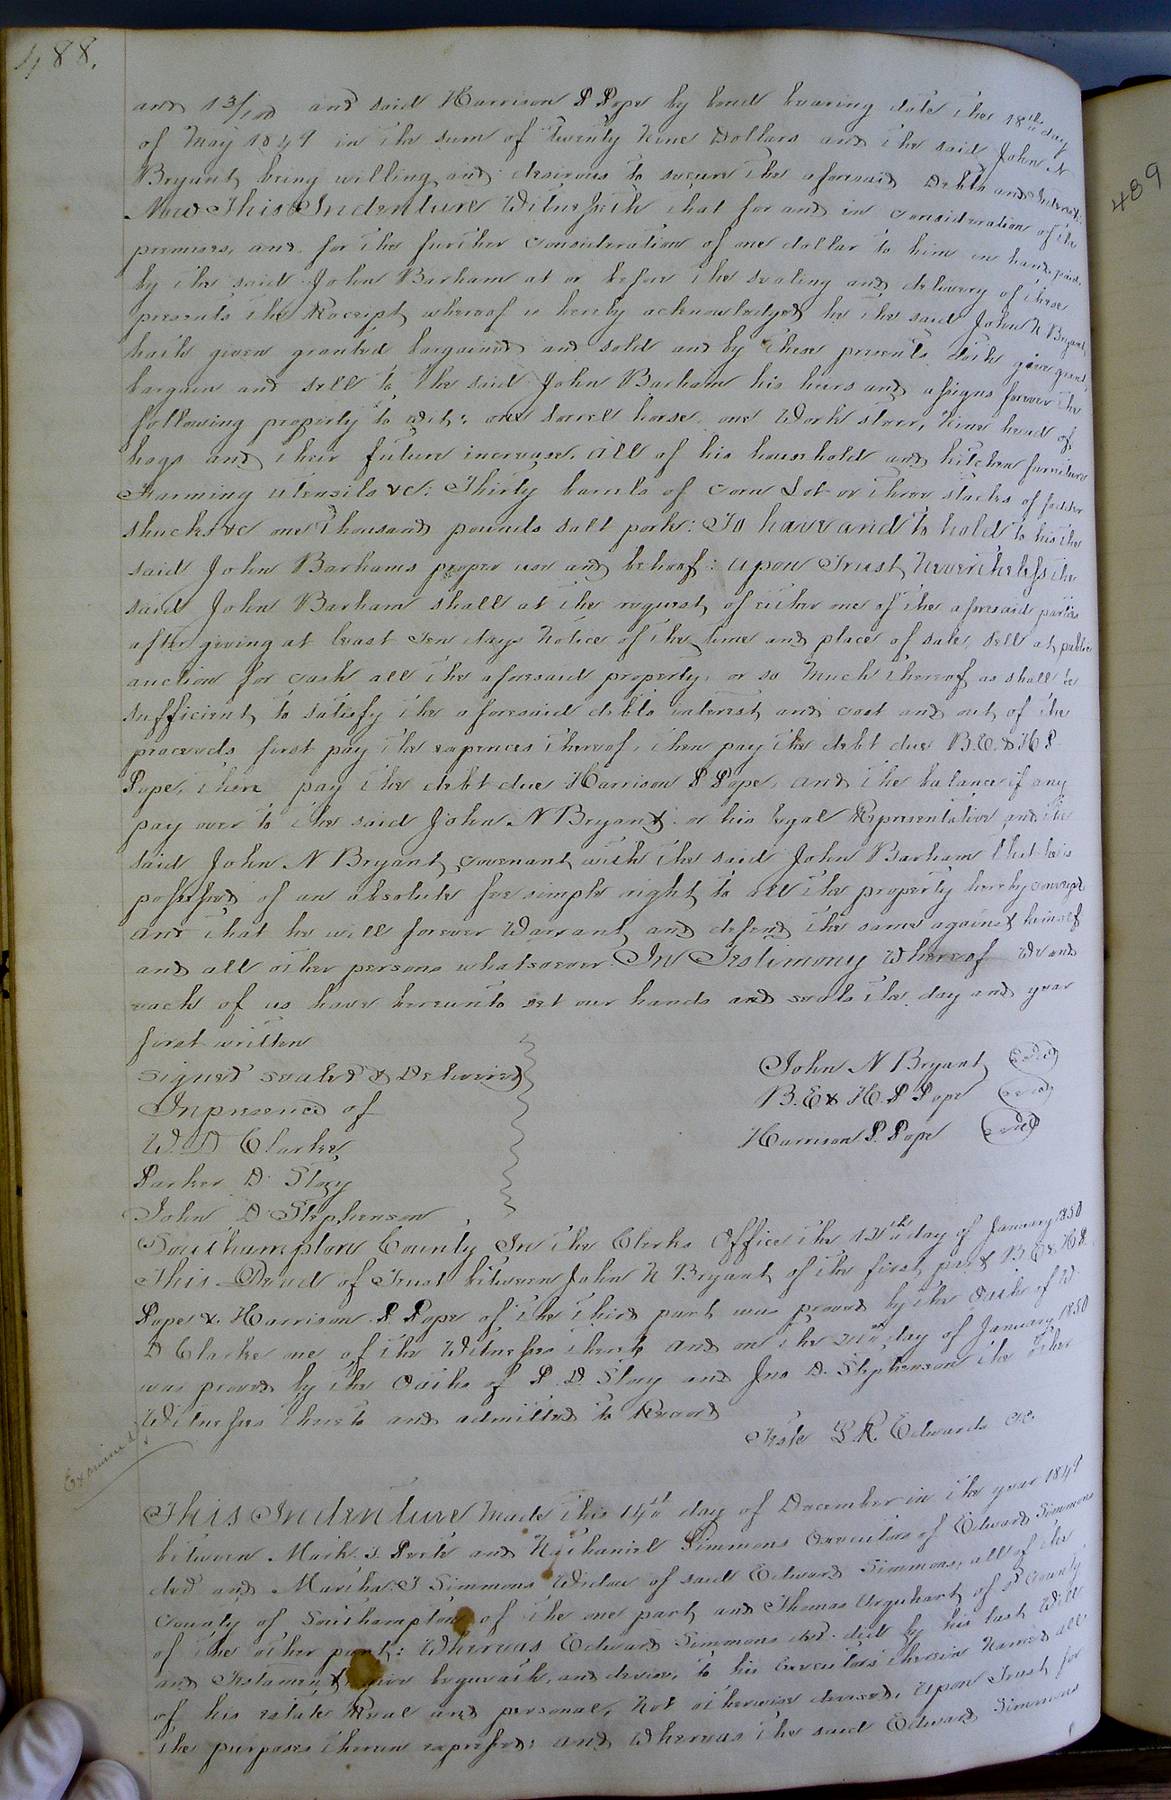 488.
and 13/100 and said Harrison P Pope by bond bearing date the 18th day
of May 1849 in the sum of twenty Nine Dollars and the said John N
Bryant being willing and desirous to secure the aforesaid Debts and Interest:
Now This Indenture Witnesseth that for and in consideration of the
premises, and for the further consideration of one dollar to him in hand paid,
by the said John Barham at or before the sealing and delivery of these
presents the Receipt whereof is hereby acknowledged he the said John N Bryant
hath given granted bargained and sold and by these presents doth give grant
bargain and sell to the said John Barham his heirs and assigns forever the
following property to wit: one sorrel horse, one Work steer, Nine head of
hogs and their future increase, all of his household and kitchen furniture
Farming utensils &c: Thirty barrels of corn Lot or three stacks of fodder
shucks &c one thousand pounds salt pork: To have and to hold to his the
said John Barhams proper use and behoof: upon Trust Nevertheless the
said John Barham shall at the request of either one of the aforesaid parties
after giving at least ten days Notice of the time and place of sale, sell at public
auction for cash all the aforesaid property, or so Much thereof as shall be
sufficient to satisfy the aforesaid debts interest and cost and out of the
proceeds first pay the expences thereof, then pay the debt due B.E. & H P
Pope, then pay the debt due Harrison P Pope, and the balance if any
pay over to the said John N Bryant or his legal Representative and the
said John N Bryant covenant with the said John Barham that he is
possessed of an absolute fee simple right to all the property hereby conveyd
and that he will forever Warrant and defend the same against himself
and all other persons whatsoever. In Testimony Whereof We and
each of us have hereunto set our hands and seals the day and year
first written
Signed sealed & Delivered
In presence of
W. D Clarke
Parker D. Story
John D Stephenson
John N Bryant (seal)
B. E & H. P Pope (seal)
Harrison P. Pope (seal)
Southampton County In the Clerks Office the 12th day of January 1850
This Deed of Trust between John N Bryant of the first part B E & H P.
Pope & Harrison P. Pope of the third part was proved by the Oath of W.
D Clarke one of the Witnesses thereto and on the 21st day of January 1850
was proved by the Oaths of P. D. Story and Jno D. Stephenson the other
Witnesses thereto and admitted to Record
Teste L. R. Edwards CC.
Examined
This Indenture Made this 14th day of December in the year 1849
between Mark. and Nathaniel Simmons Executors of Edward Simmons
decd and Martha. J Simmons Widow of said Edward Simmons, all of the
County of Southampton of the one part and Thomas Urquhart of sd County
of the other part: Whereas Edward Simmons decd. did by his last Will
and Testament give bequeath, and devise, to his Executors therein Named all
of his estate Real and personal, Not otherwise devised, Upon Trust for
the purposes therein expressed: and Whereas the said Edward Simmons
489